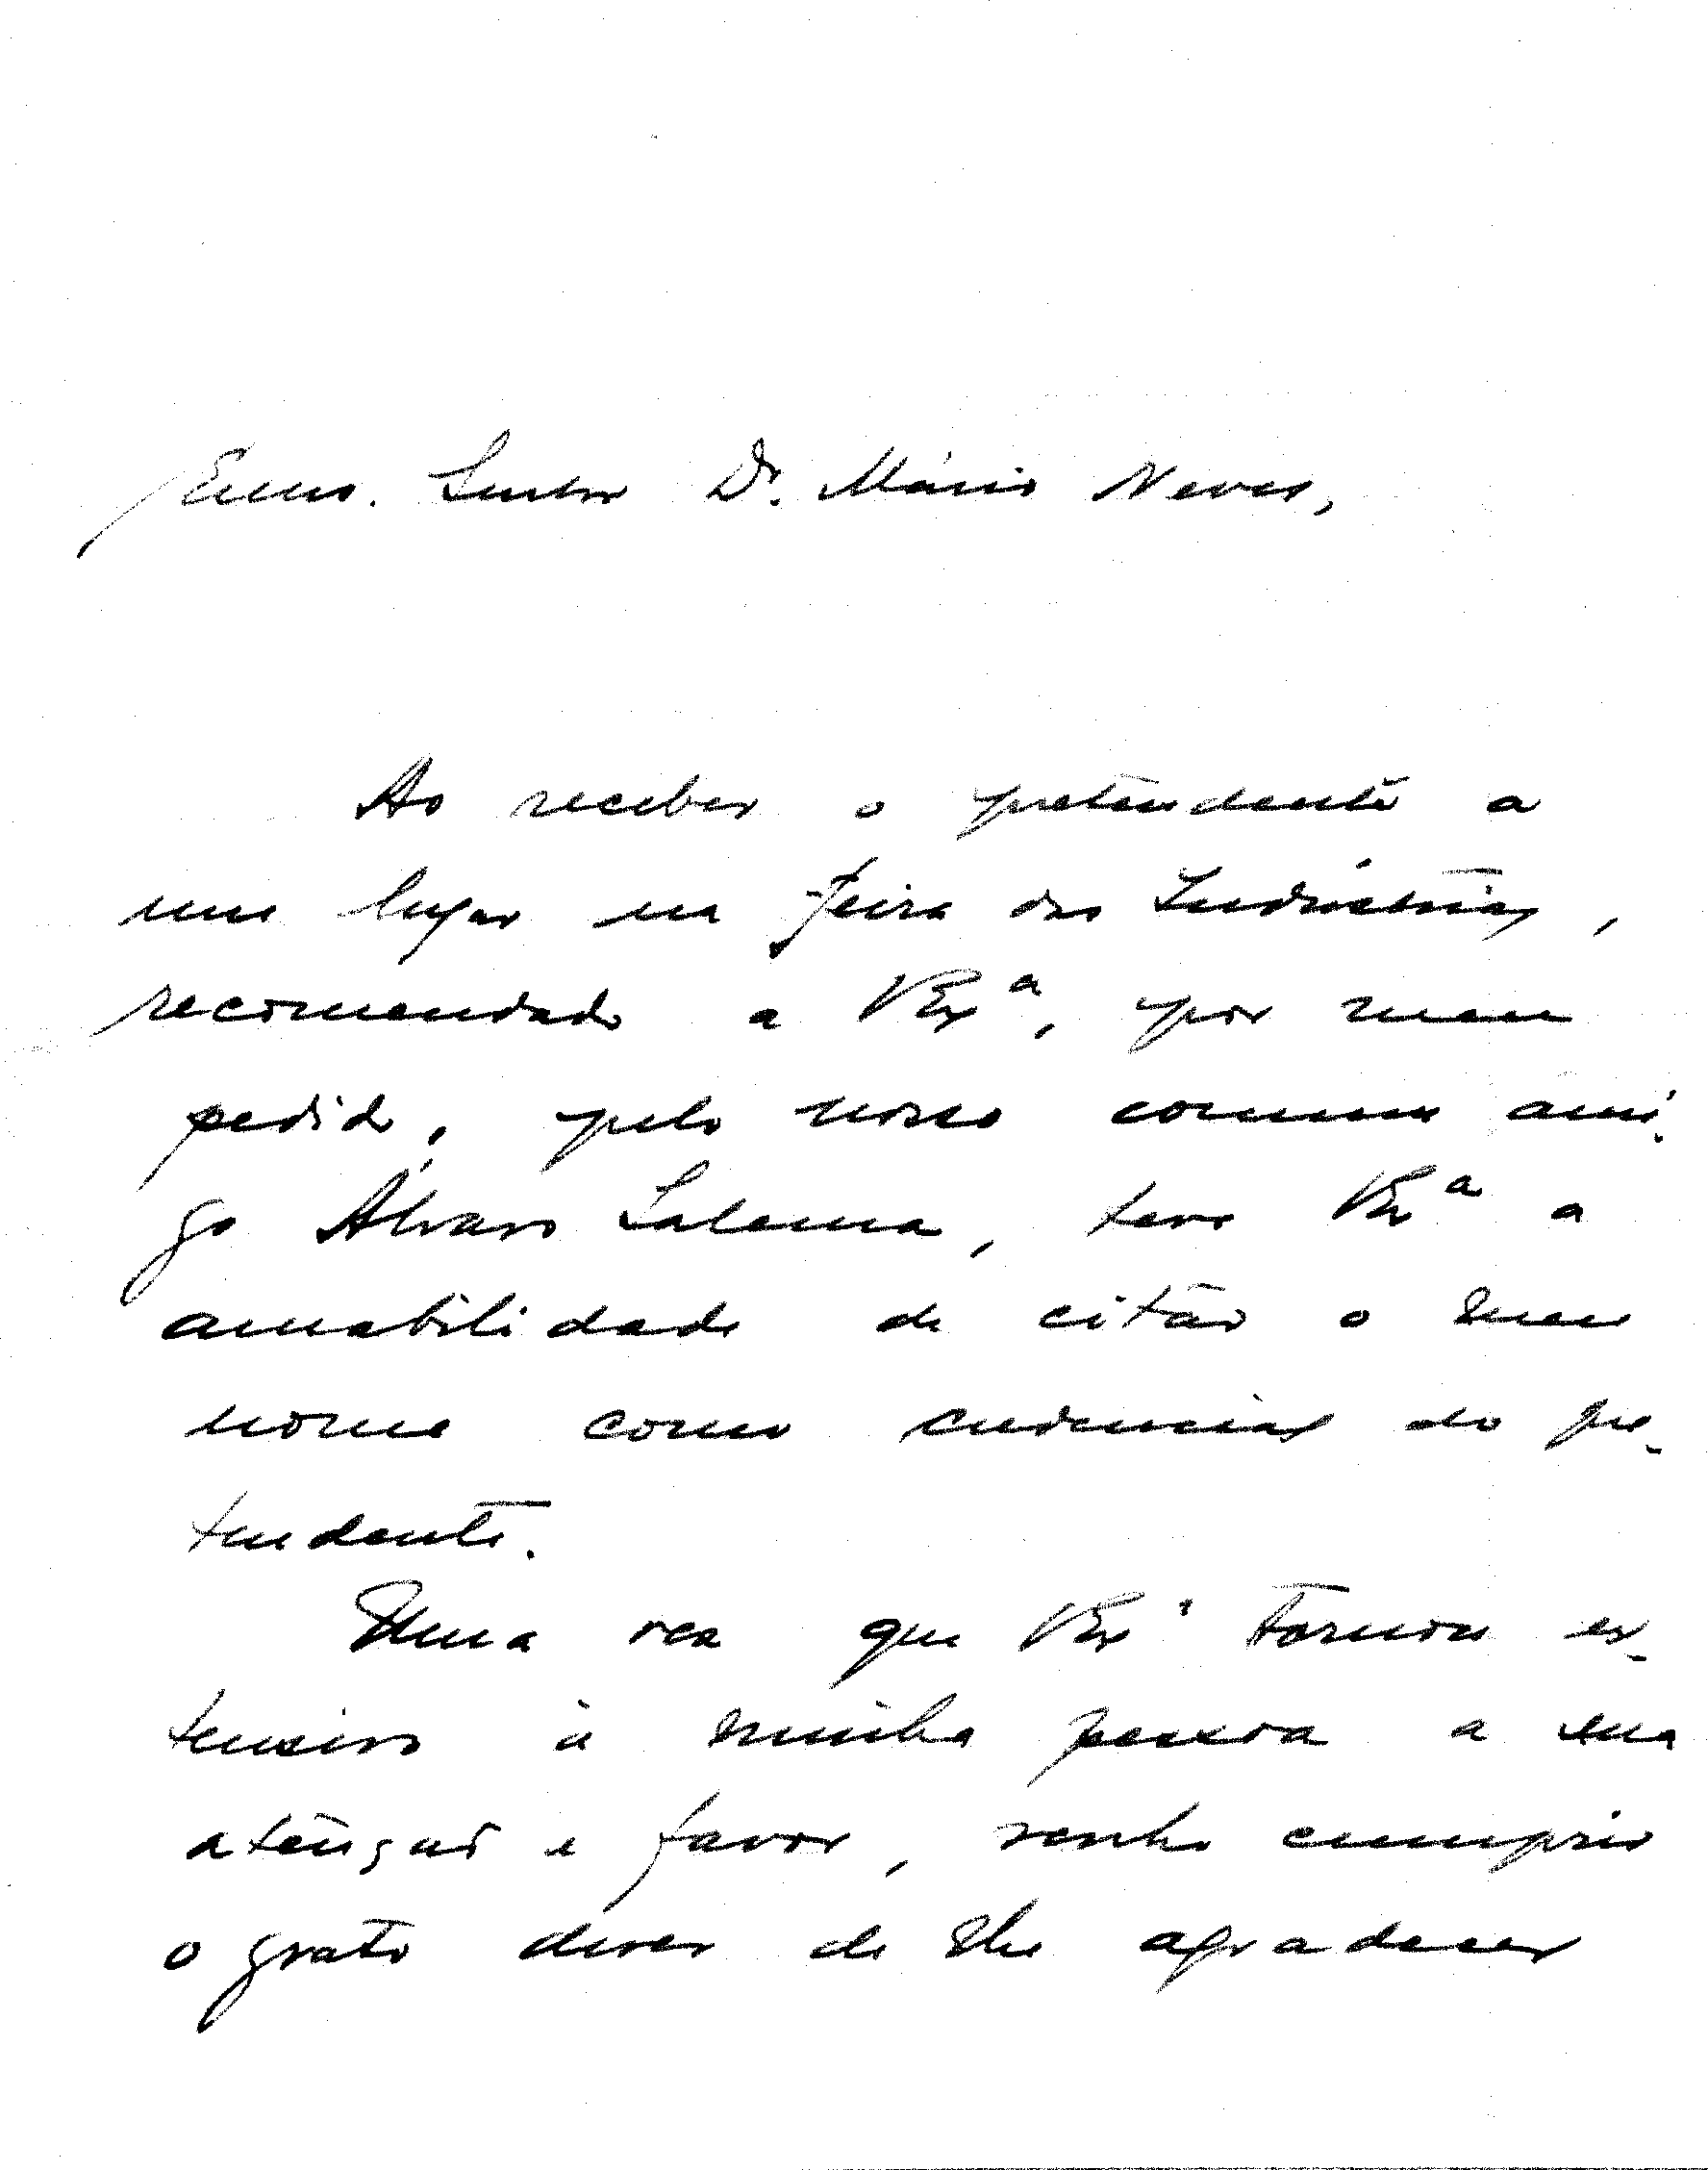 Exmo. Senhor Dr. Mário Neves,
Ao receber o pretendente a
um lugar na Feira das Indústrias,
recomendado a V Exª, por meu
pedido, pelo nosso comum ami-
go Álvaro Salema, teve V Exª a
amabilidade de citar o meu
nome como credencial do pre-
tendente.
Uma vez que V Exª tornou ex-
tensivo à minha pessoa a sua
atenção e favor, venho cumprir
o grato dever de lhe agradecer